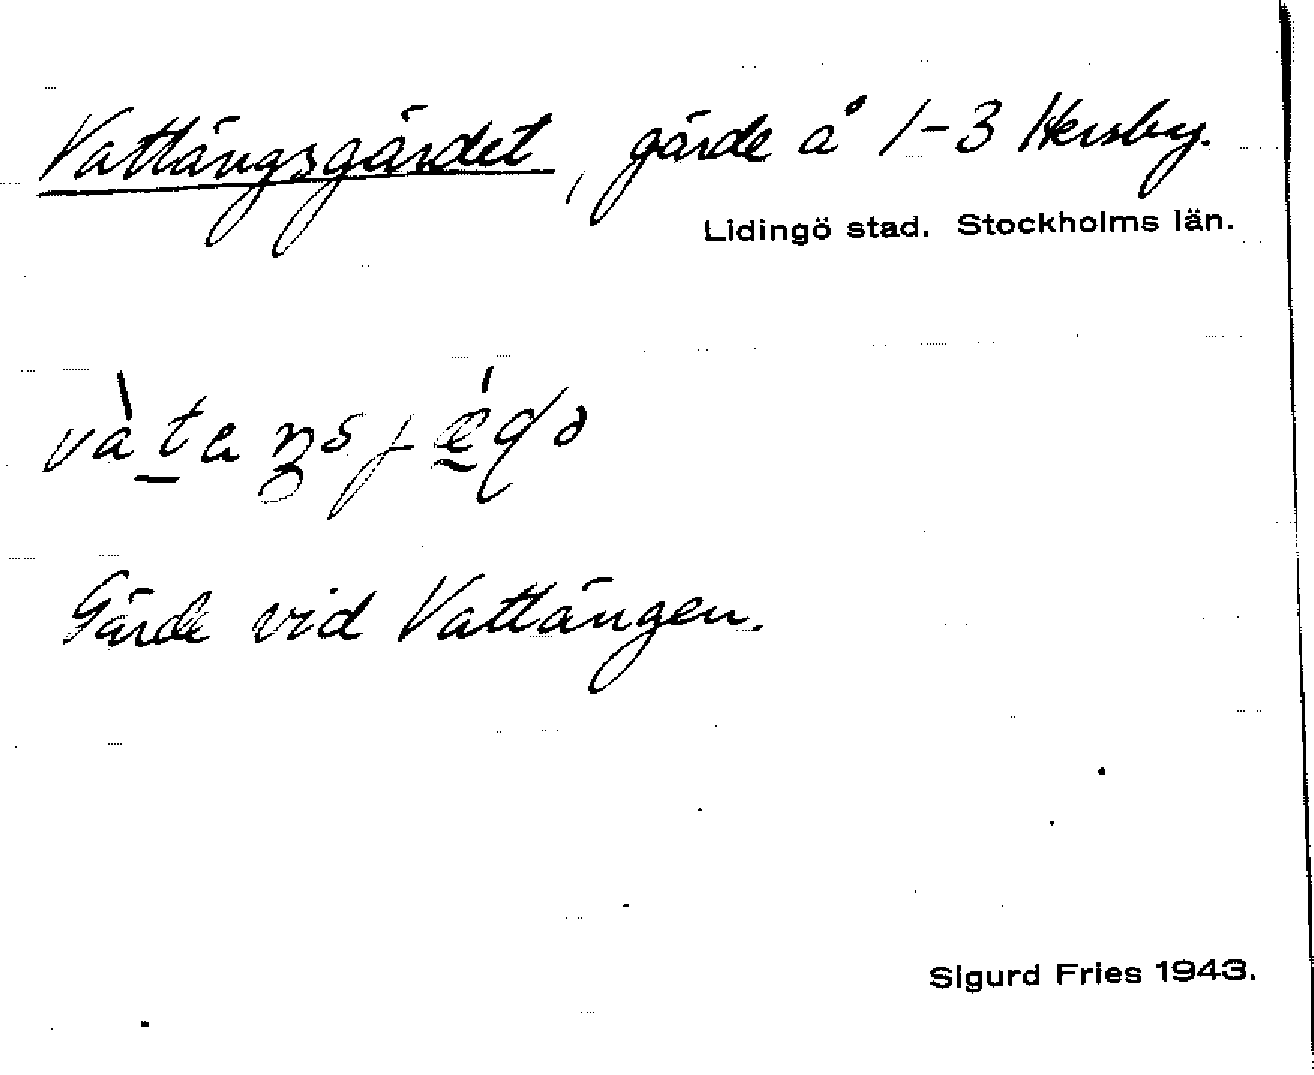 Vattängsgärdet, gärde å 1-3 Hersby.
Lidingö stad. Stockholms län.
Gärde vid Vattängen.
Sigurd Fries 1943.